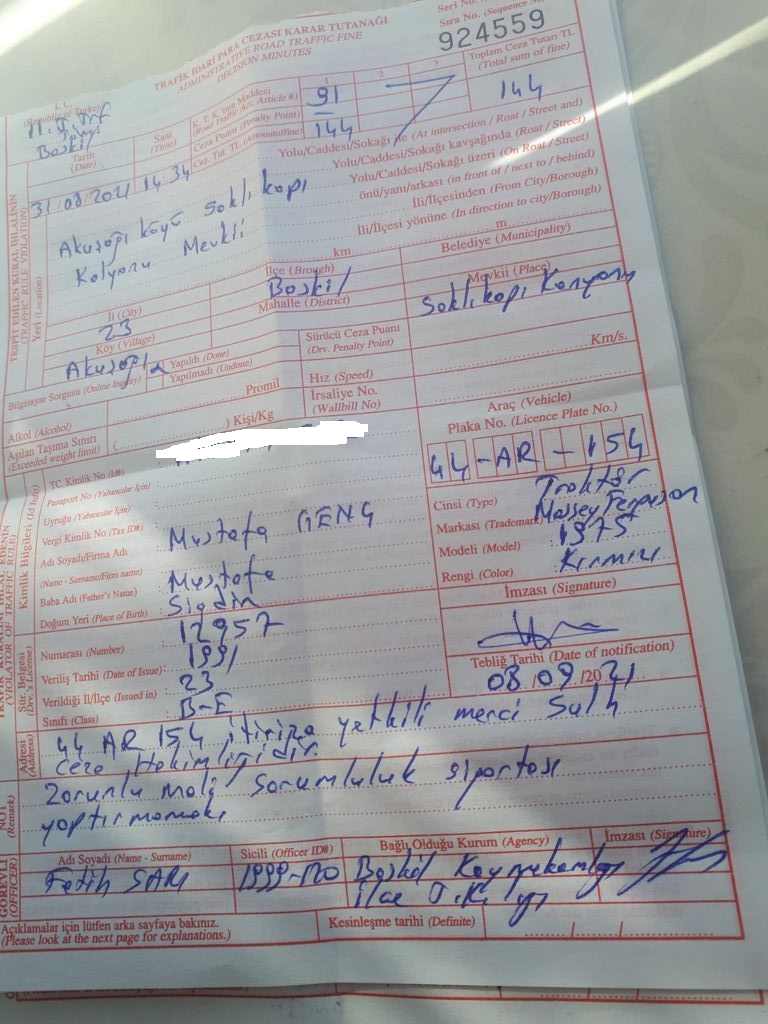 Seri No.
Sıra No. (Sequence No.)
924559
TRAFİK İDARİ PARA CEZASI KARAR TUTANAĞI
ADMINISTRATIVE ROAD TRAFFIC FINE
DECISION MINUTES
T. C.
(Republic of Turkey)
Baskil
1 2 3
K. T. K.'nun Maddesi
(Road Traffic Acc. Article #) 91
Ceza Puanı (Penalty Point)
Cez. Tut. TL (Amountoffine) 144
Toplam Ceza Tutarı TL
(Total sum of fine)
144
Tarihi
(Date)
Saat
(Time)
31/08/2021 14:34
Yolu/Caddesi/Sokağı ile (At intersection / Roat / Street and)
Yolu/Caddesi/Sokağı kavşağında (Roat / Street)
Yolu/Caddesi/Sokağı üzeri (On Roat / Street)
önü/yanı/arkası (in front of / next to / behind)
İli/İlçesinden (From City/Borough)
İli/İlçesi yönüne (In direction to city/Borough)
TESPİT EDİLEN KURAL İHLALİNİN
(TRAFFIC RULE VIOLATION)
Yeri (Location)
köyü Saklı kapı
Mevkii
km. m.
İl (City)
23
İlçe (Brough)
Baskil
Belediye (Municipality)
Köy (Village)
Mahalle (District)
Mevkii (Place)
Saklıkapı Kanyonu
Bilgisayar Sorgusu (Online Inquiry)
Yapıldı (Done)
Yapılmadı (Undone)
Sürücü Ceza Puanı
(Drv. Penalty Point)
Alkol (Alcohol) Promil
Hız (Speed) Km/s.
Aşılan Taşıma Sınırı
(Exceeded weight limit) ( ) Kişi/Kg
İrsaliye No.
(Wallbill No)
Kimlik Bilgileri (Id Info)
TC Kimlik No (Id#)
Pasaport No (Yabancılar İçin)
Uyruğu (Yabancılar İçin)
Vergi Kimlik No (Tax ID#)
Adı Soyadı/Firma Adı
(Name - Surname/Firm name) : Mustafa GENÇ
Baba Adı (Father's Name) : Mustafa
Doğum Yeri (Place of Birth) :
Araç (Vehicle)
Plaka No. (Licence Plate No.)
44-AR-154
Cinsi (Type) : Traktör
Markası (Trademark) Massey Ferguson
Modeli (Model) : 1975
Rengi (Color) : Kırmızı
İmzası (Signature)
Tebliğ Tarihi (Date of notification)
08/09/2021
Sür. Belgesi
(Drv.'s License)
Numarası (Number) : 12957
Veriliş Tarihi (Date of Issue) : 1991
Verildiği İl/İlçe (Issued in) : 23
Sınıfı (Class) : B-E
Adresi
(Address)
44 AR 154 itiriza yetkili merci Sulh
Ceza Hakimliğidir
NOT
(Remark)
Zorunlu mali sorumluluk sigortası
yaptırmamak
GÖREVLİ
(OFFICER)
Adı Soyadı (Name - Surname)
Fatih SARI
Sicili (Officer ID#)
Bağlı Olduğu Kurum (Agency)
Baskil Kaymakamlığı
İmzası (Signature)
Açıklamalar için lütfen arka sayfaya bakınız.
(Please look at the next page for explanations.)
Kesinleşme tarihi (Definite) / /